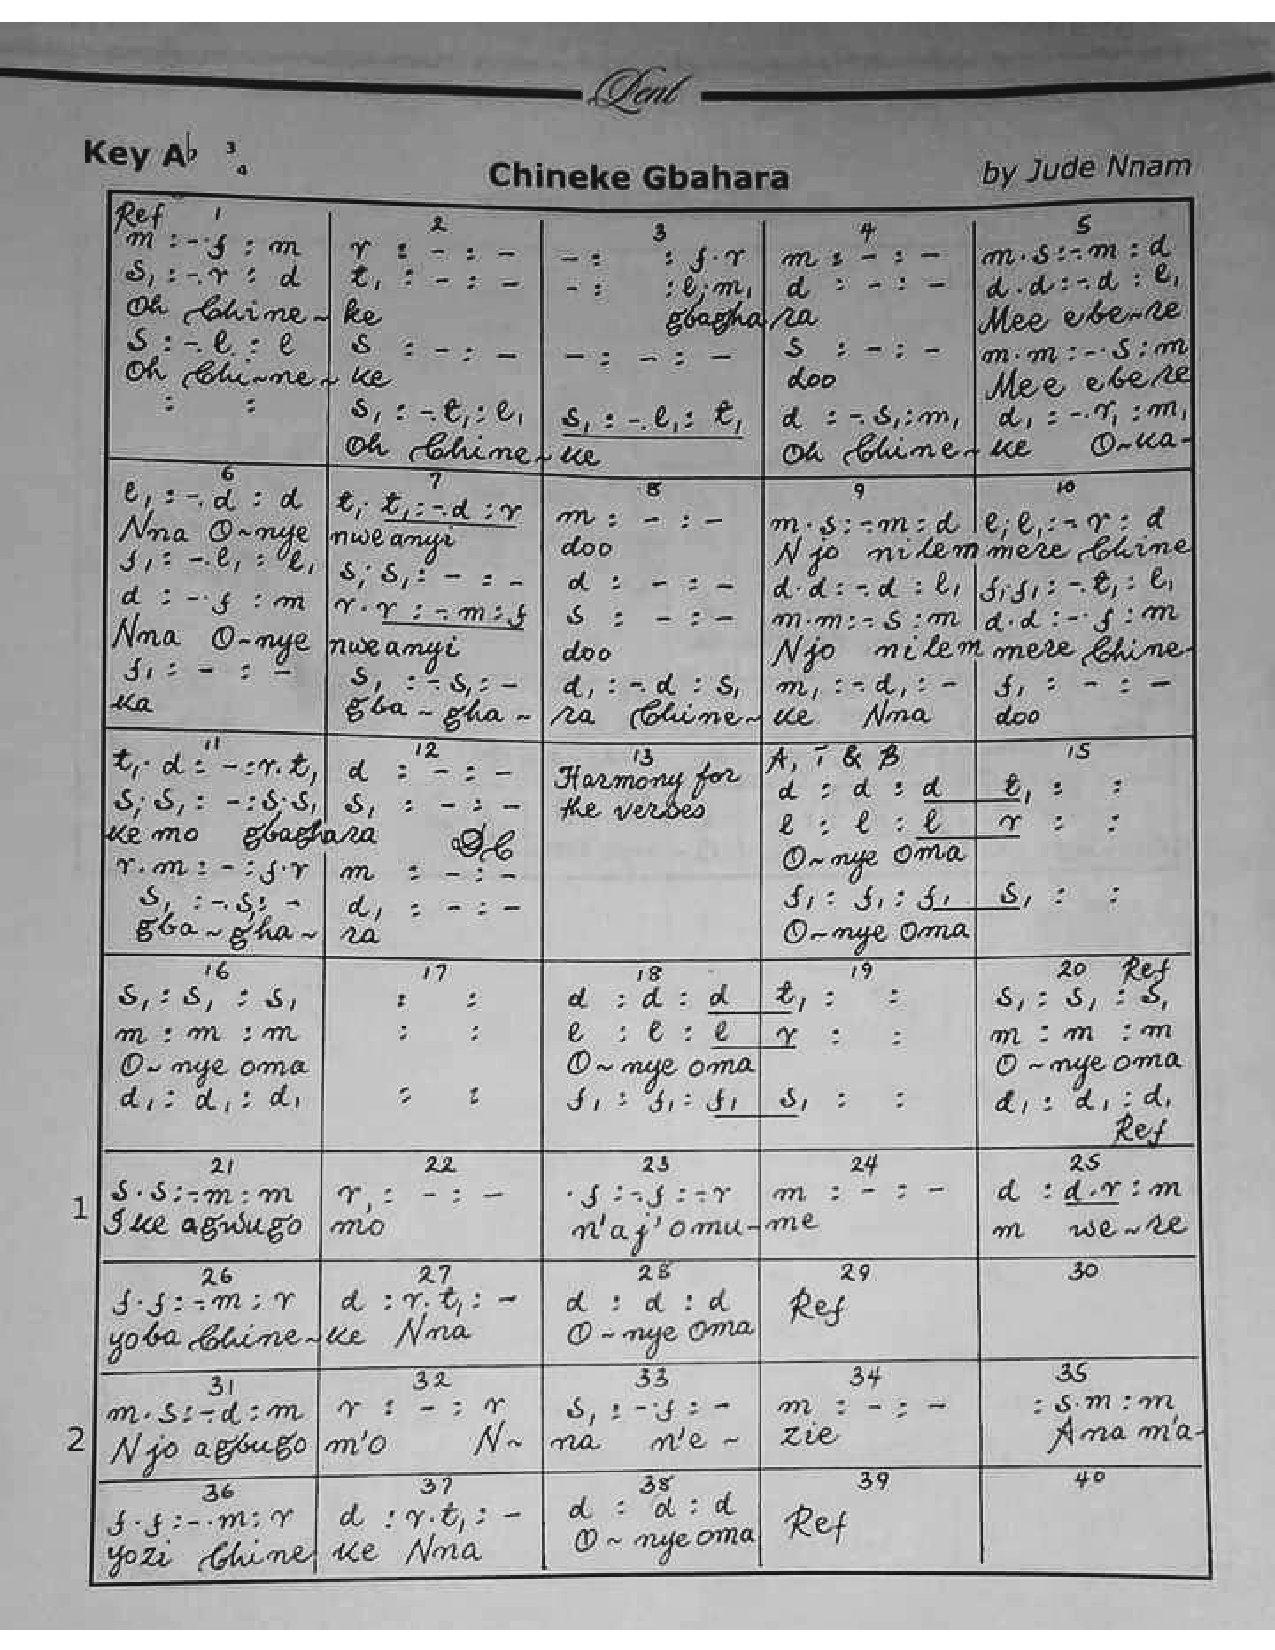 Lent
Key A♭ 3/4
Chineke Gbahara
by Jude Nnam
Ref 1
m : -.f : m
s, : -.r : d
Oh Chine~
s : -.l : l
Oh Chi~ne~
: :
2
r : - : -
t, : - : -
ke
s : - : -
ke
s, : -.t, : l,
Oh Chine~
3
- : : f.r
- : : l,.m,
gbagha
- : - : -
s, : -.l, : t,
ke
4
m : - : -
d : - : -
ra
s : - : -
doo
d : -.s, : m,
Oh Chine~
5
m.s : -.m : d
d.d : -.d : l,
Mee ebe~re
m.m : -.s : m
Mee ebere
d, : -.r, : m,
ke O~ka-
6
l, : -.d : d
Nna O~nye
f, : -.l, : l,
d : -.f : m
Nna O~nye
f, : - : -
ka
7
t,. t, : -.d : r
nwe anyi
s,. s, : - : -
r.r : -.m : f
nwe anyi
s, : -.s, : -
gba~gha~
8
m : - : -
doo
d : - : -
s : - : -
doo
d, : -.d : s,
ra Chine~
9
m.s : -.m : d
Njo nilem
d.d : -.d : l,
m.m : -.s : m
Njo nilem
m, : -.d, : -
ke Nna
10
l,.l, : -.r : d
mere Chine
f,.f, : -.t, : l,
d.d : -.f : m
mere Chine-
f, : - : -
doo
11
t,.d : - : r.t,
s,.s, : - : s.s,
ke mo gbaghara
r.m : - : f.r
s, : -.s, : -
gba~gha~
12
d : - : -
s, : - : -
DC
m : - : -
d, : - : -
ra
13
Harmony for
the verses
A, T & B
d : d : d
l : l : l
O~nye oma
f, : f, : f,
O~nye oma
15
t, : :
r : :
s, : :
16
s, : s, : s,
m : m : m
O~nye oma
d, : d, : d,
17
: :
: :
: :
18
d : d : d
l : l : l
O~nye oma
f, : f, : f,
19
t, : :
r : :
s, : :
20 Ref
s, : s, : s,
m : m : m
O~nye oma
d, : d, : d,
Ref
1
21
s.s : -.m : m
Ike agwugo
22
r, : - : -
mo
23
.f : -.f : -.r
n'aj'omu-
24
m : - : -
me
25
d : d.r : m
m we~re
26
f.f : -.m : r
yoba Chine~
27
d : r.t, : -
ke Nna
28
d : d : d
O~nye oma
29
Ref
30
2
31
m.s : -.d : m
Njo agbugo
32
r : - : r
m'o N~
33
s, : -.f : -
na n'e~
34
m : - : -
zie
35
: s.m : m
Ana m'a-
36
f.f : -.m : r
yozi Chine
37
d : r.t, : -
ke Nna
38
d : d : d
O~nye oma
39
Ref
40